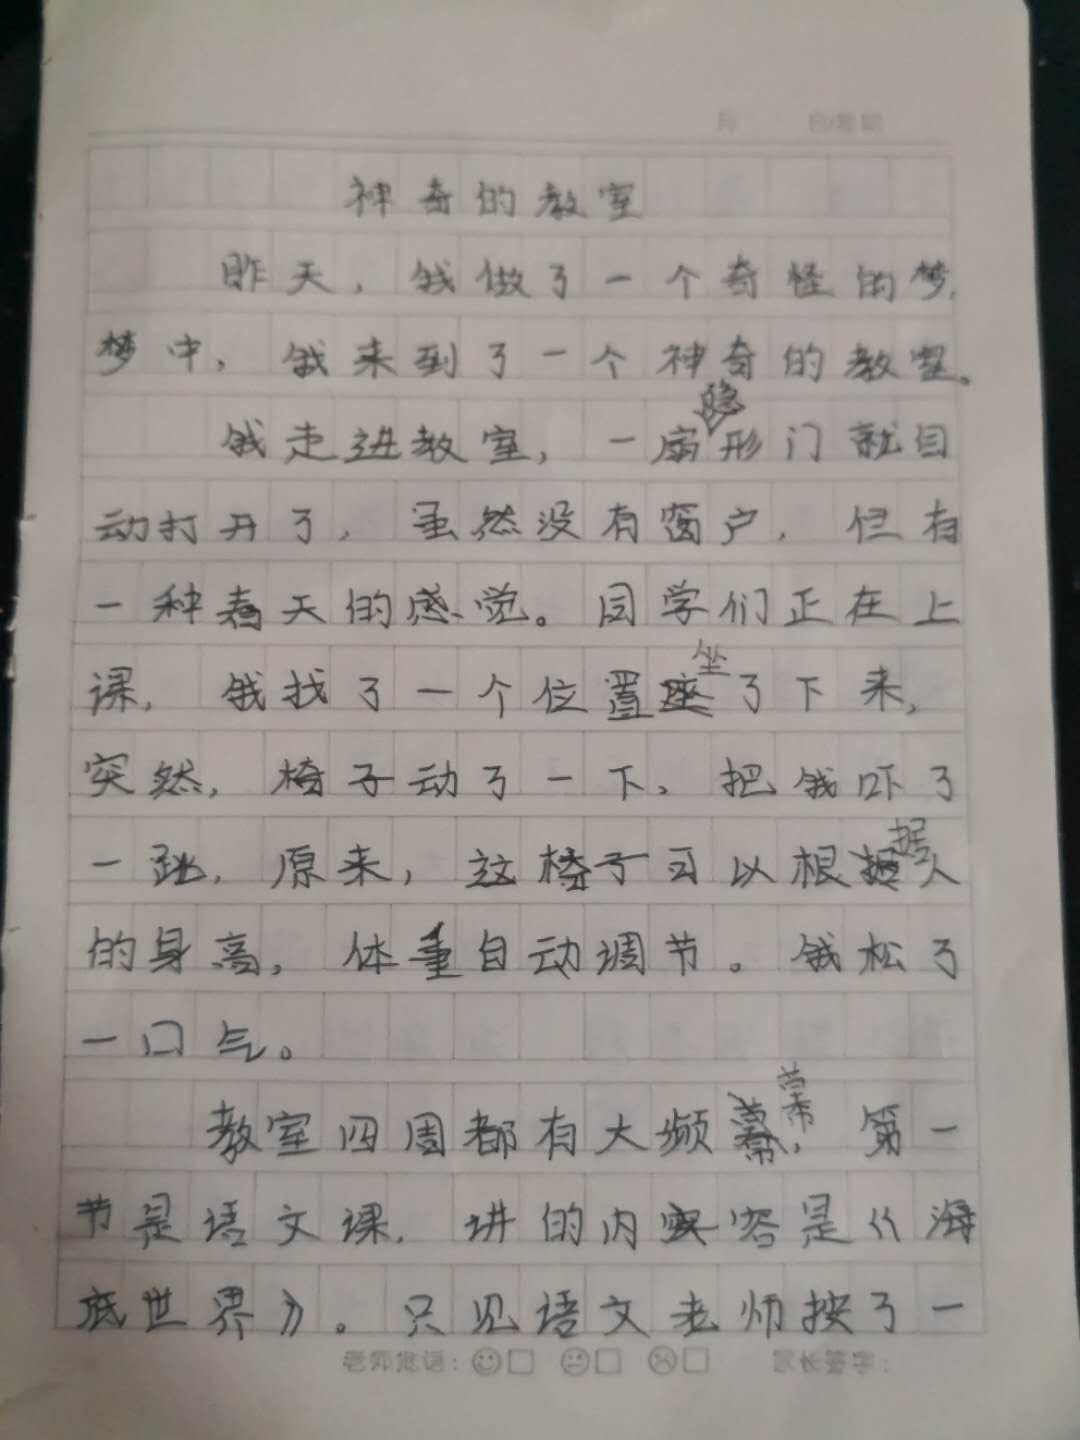 月 日/星期
神奇的教室
昨天，我做了一个奇怪的梦，
梦中，我来到了一个神奇的教室。
我走进教室，一扇隐形门就自
动打开了，虽然没有窗户，但有
一种春天的感觉。同学们正在上
课，我找了一个位置坐了下来，
突然，椅子动了一下，把我吓了
一跳，原来，这椅子可以根据人
的身高，体重自动调节。我松了
一口气。
教室四周都有大频幕，第一
节是语文课，讲的内容是《海
底世界》。只见语文老师按了一
老师寄语： 家长签字：